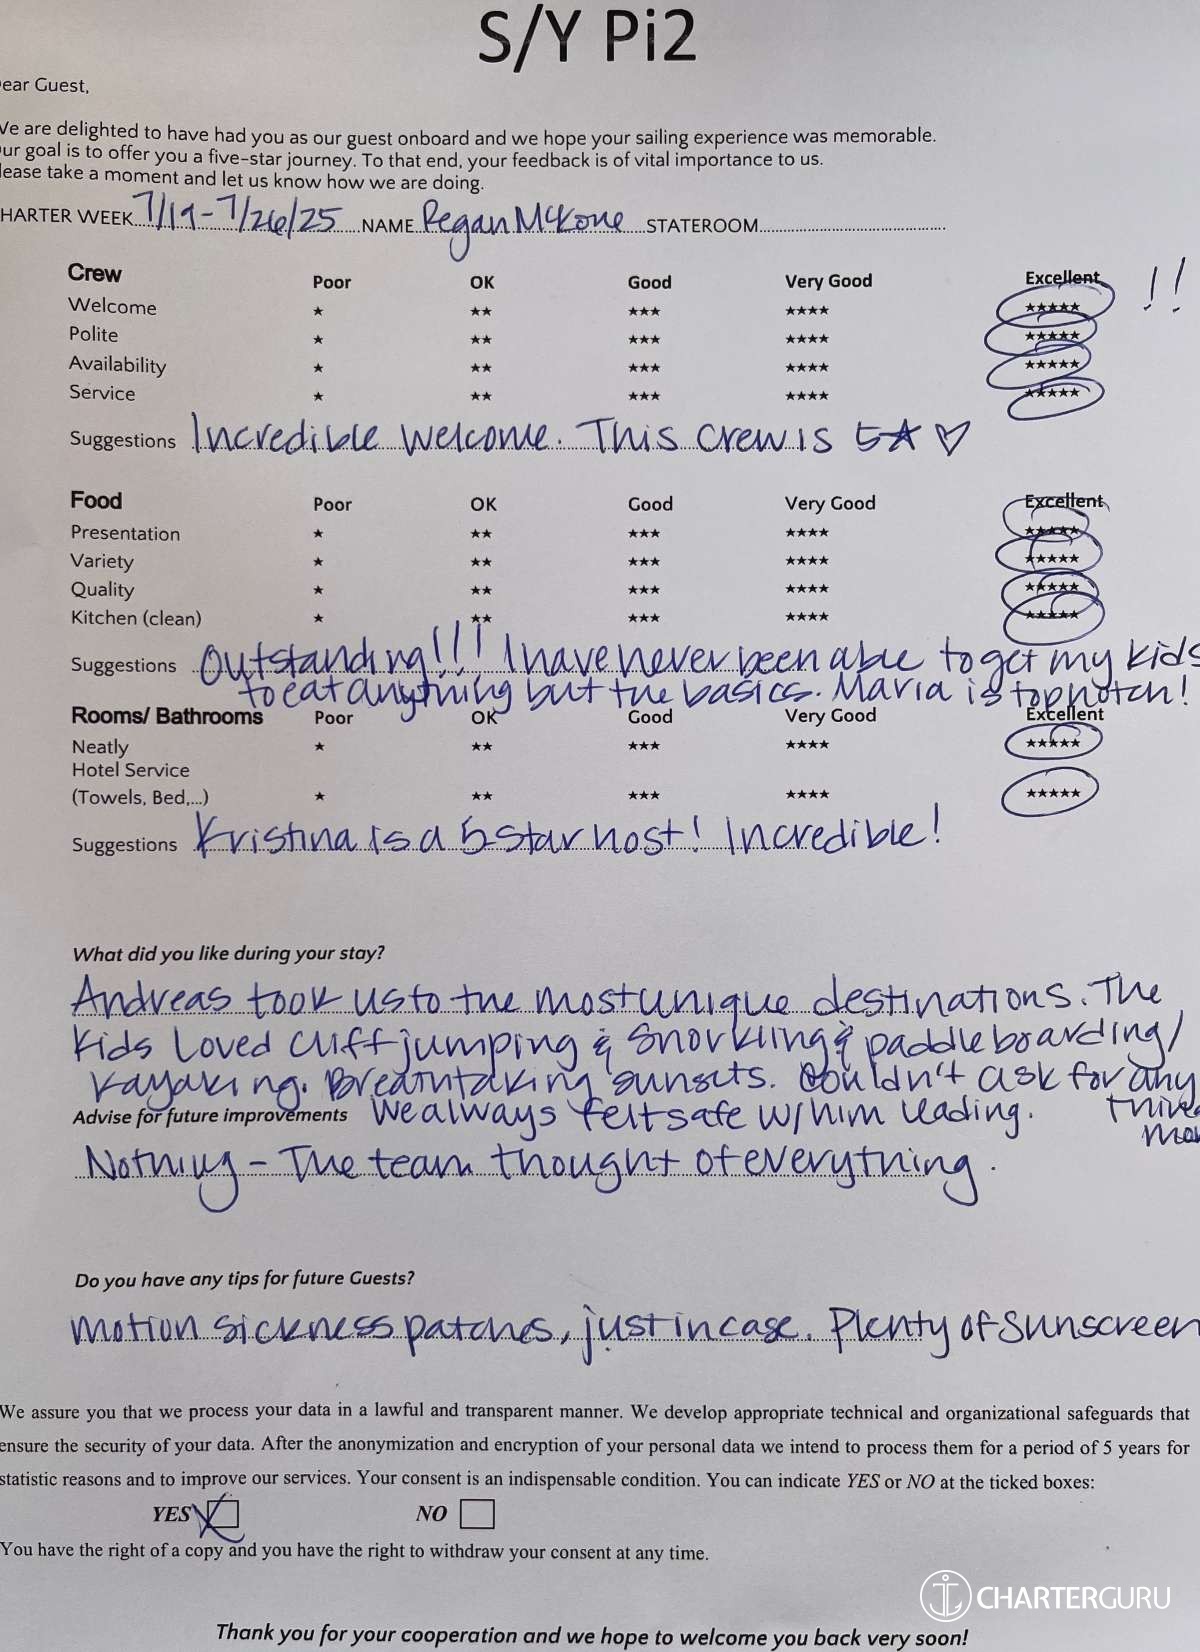 S/Y Pi2
ear Guest,
e are delighted to have had you as our guest onboard and we hope your sailing experience was memorable.
ur goal is to offer you a five-star journey. To that end, your feedback is of vital importance to us.
lease take a moment and let us know how we are doing.
HARTER WEEK 7/19-7/26/25 NAME Regan McKone STATEROOM
Crew Poor OK Good Very Good Excellent !!
Welcome ★ ★★ ★★★ ★★★★ ★★★★★
Polite ★ ★★ ★★★ ★★★★ ★★★★★
Availability ★ ★★ ★★★ ★★★★ ★★★★★
Service ★ ★★ ★★★ ★★★★ ★★★★★
Suggestions Incredible Welcome. This Crew is 5★ ♡
Food Poor OK Good Very Good Excellent
Presentation ★ ★★ ★★★ ★★★★ ★★★★★
Variety ★ ★★ ★★★ ★★★★ ★★★★★
Quality ★ ★★ ★★★ ★★★★ ★★★★★
Kitchen (clean) ★ ★★ ★★★ ★★★★ ★★★★★
Suggestions Outstanding!!! I have never been able to get my kids
to eat anything but the basics. Maria is top notch!
Rooms/ Bathrooms Poor OK Good Very Good Excellent
Neatly ★ ★★ ★★★ ★★★★ ★★★★★
Hotel Service
(Towels, Bed,...) ★ ★★ ★★★ ★★★★ ★★★★★
Suggestions Kristina is a 5 star host! Incredible!
What did you like during your stay?
Andreas took us to the most unique destinations. The
kids loved cliff jumping & snorkling & paddle boarding/
kayaking. Breathtaking sunsets. Couldn't ask for any
thing
more
Advise for future improvements We always felt safe w/ him leading.
Nothing - The team thought of everything.
Do you have any tips for future Guests?
motion sickness patches, just in case. Plenty of sunscreen
We assure you that we process your data in a lawful and transparent manner. We develop appropriate technical and organizational safeguards that
ensure the security of your data. After the anonymization and encryption of your personal data we intend to process them for a period of 5 years for
statistic reasons and to improve our services. Your consent is an indispensable condition. You can indicate YES or NO at the ticked boxes:
YES NO
You have the right of a copy and you have the right to withdraw your consent at any time.
CHARTERGURU
Thank you for your cooperation and we hope to welcome you back very soon!